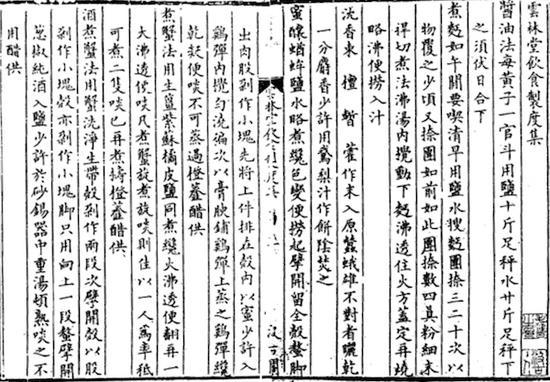 雲林堂飲食製度集
醬油法每黃子一官斗用鹽十斤足秤水廿斤足秤下
之須伏日合下
煮麪如午間要喫清早用鹽水搜麪團捺三二十次以
物覆之少頃又捺團如前如此團捺數四真粉細末
捍切煮法沸湯内攪動下麪沸透住火方蓋定再燒
略沸便撈入汁
沈香束 檀 藿作末入原蠶蛾雄不對者曬乾
一分麝香少許用鵞梨汁作餅陰焚之
蜜釀蝤蛑鹽水略煮纔色變便撈起擘開留全殻螯脚
出肉股剁作小塊先將上件排在殻内以蜜少許入
鷄彈内攪勻澆徧次以膏腴鋪鷄彈上蒸之鷄彈纔
乾凝便啖不可蒸過橙虀醋供
煮蟹法用生薑紫蘇橘皮鹽同煮纔火沸透便翻再一
大沸透便啖凡煮蟹旋煮旋啖則佳以一人為率秪
可煮二隻啖已再煮擣橙虀醋供
酒煮蟹法用蟹洗淨生帶殻剁作兩段次擘開殻以股
剁作小塊殻亦剁作小塊脚只用向上一段螯擘開
葱椒純酒入鹽少許於砂錫器中重湯頓熟啖之不
用醋供